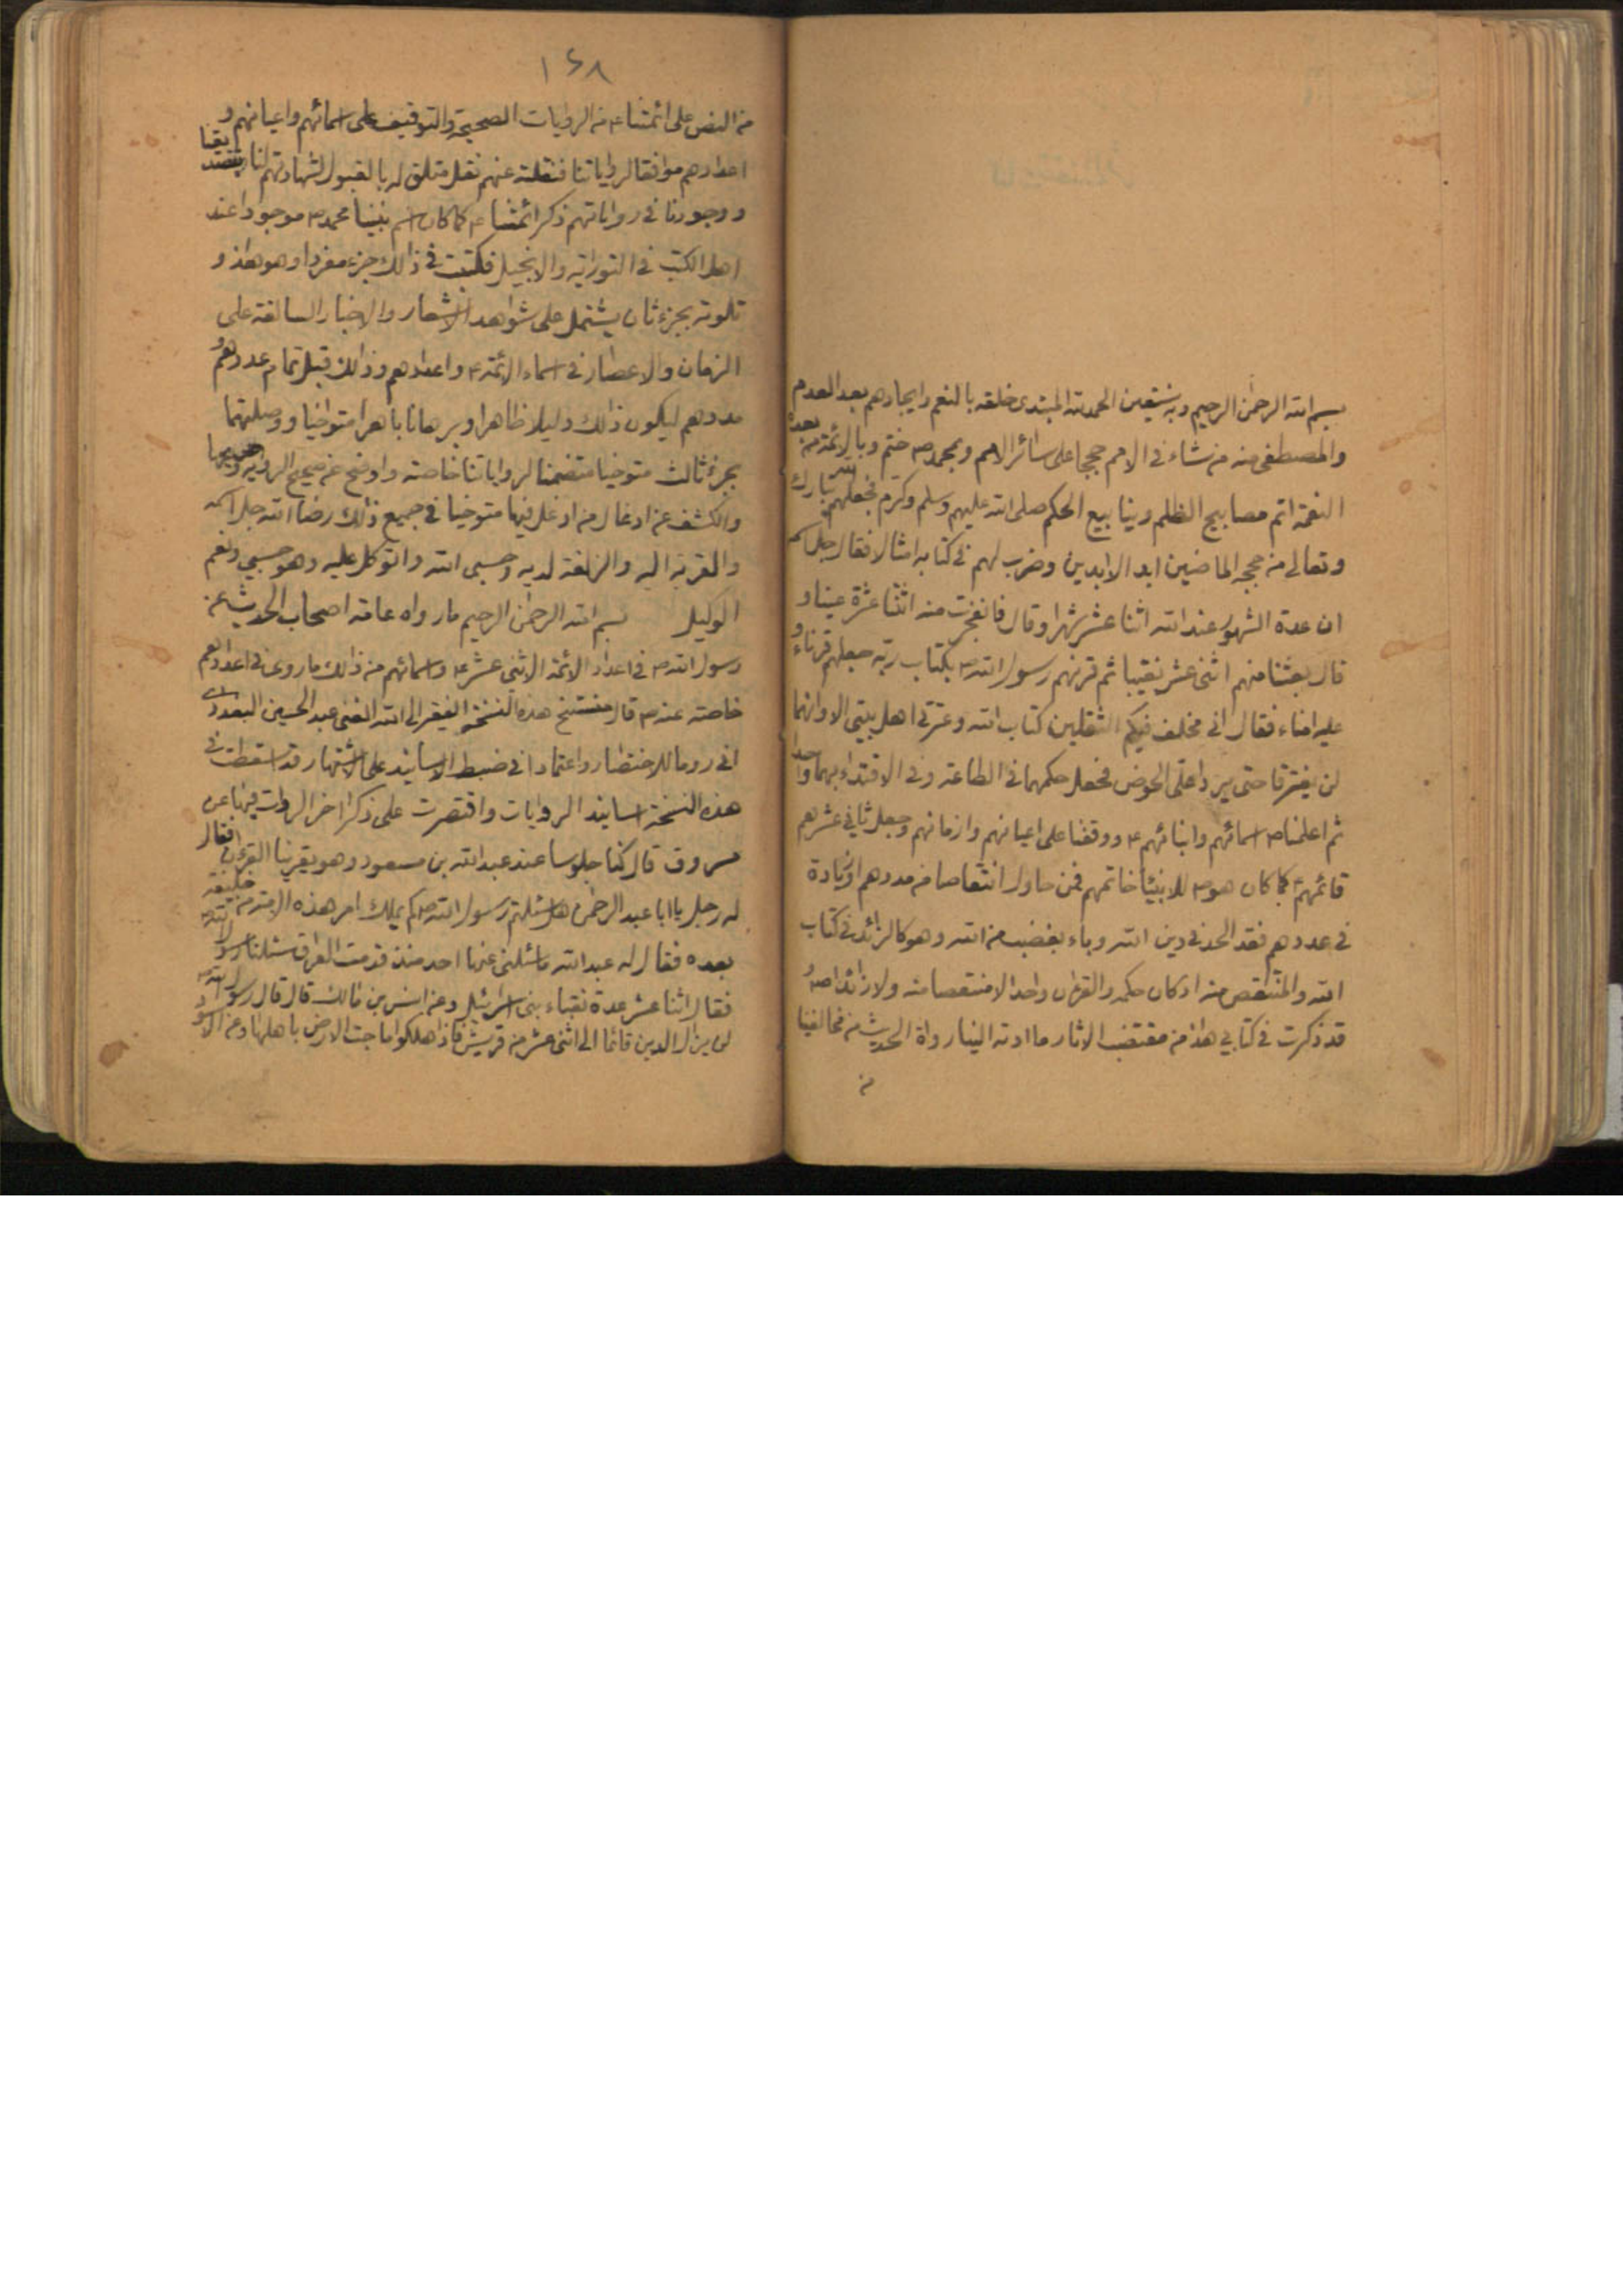 بسم الله الرحمن الرحيم وبه نستعين الحمد لله المبتدى خلقه بالنعم وايجادهم بعد العدم
والمصطفى منه من شاء فى الامم حججا على سائر الامم وبمحمد ص ختم وبالائمة من بعده
النعمة اتم مصابيح الظلم وينابيع الحكم صلى الله عليهم وسلم وكرم فجعلهم الله تبارك
وتعالى من حججه الماضين ابد الابدين وضرب لهم فى كتابه امثالا فقال جل اسمه
ان عدة الشهور عند الله اثنا عشر شهرا وقال فانفجرت منه اثنتا عشرة عينا و
قال بعثنا منهم اثنى عشر نقيبا ثم قرنهم رسول الله ص بكتاب ربه جعلهم قرناء و
عليه امناء فقال انى مخلف فيكم الثقلين كتاب الله وعترتى اهل بيتى الا وانهما
لن يفترقا حتى يردا على الحوض فجعل حكمهما فى الطاعة وفى الاقتداء بهما واحدا
ثم اعلمنا ص اسمائهم وانبائهم ع ووقفنا على اعيانهم وازمانهم وجعل ثانى عشرهم
قائمهم ع كما كان هو ص للانبياء خاتمهم فمن حاول انتقاصا من عددهم او زيادة
فى عددهم فقد الحد فى دين الله وباء بغضب من الله وهو كالزائد فى كتاب
الله والمنتقص منه اذ كان حكمه والقران واحدا لا منتقصا منه ولا زائدا
قد ذكرت فى كتابى هذا من مقتضب الاثار ما ادته الينا رواة الحديث من مخالفينا
من
١٤٨
من النص على ائمتنا ع من الروايات الصحيحة والتوقيف على اسمائهم واعيانهم و
اعدادهم موافقا لرواياتنا فنقلته عنهم نقل متلق له بالقبول لشهادتهم لنا بتصديقنا
ووجودنا فى رواياتهم ذكر ائمتنا ع كما كان اسم نبينا محمد ص موجودا عند
اهل الكتب فى التوراة والانجيل فكتبت فى ذلك جزء مفردا وهو هذا و
تلوته بجزء ثان يشتمل على شواهد الاشعار والاخبار السالفة على
الزمان والاعصار فى اسماء الائمة ع واعدادهم وذلك قبل تمام عددهم و
مددهم ليكون ذلك دليلا ظاهرا وبرهانا باهرا متواخيا ووصلتهما
بجزء ثالث متوخيا متضمنا لرواياتنا خاصة واوضح عن صحيح الرواية
والكشف عن ادغال من ادغل فيها متوخيا فى جميع ذلك رضا الله جل اسمه
والقربة اليه والزلفة لديه وحسبى الله واتوكل عليه وهو حسبى ونعم
الوكيل بسم الله الرحمن الرحيم ما رواه عامة اصحاب الحديث عن
رسول الله ص فى اعداد الائمة الاثنى عشر ع واسمائهم من ذلك ما روى فى اعدادهم
خاصة عنه ص قال منتسخ هذه النسخة الفقير الى الله الغنى عبد الحسين البغدادى
انى روما للاختصار واعتمادا فى ضبط الاسانيد على الاشتهار قد اسقطت فى
هذه النسخة اسانيد الروايات واقتصرت على ذكر اخر الروات فيها عن
مسروق قال كنا جلوسا عند عبد الله بن مسعود وهو يقرينا القرءان فقال
له رجل يا ابا عبد الرحمن هل سئلتم رسول الله صلعم كم يملك امر هذه الامة من خليفة
بعده فقال له عبد الله ما سئلنى عنها احد منذ قدمت العراق سئلنا رسول الله ص
فقال اثنا عشر عدة نقباء بنى اسرائيل وعن انس بن مالك قال قال رسول الله ص
لن يزال الدين قائما الى اثنى عشر من قريش فاذا هلكوا ماجت الارض باهلها وعن الاسود